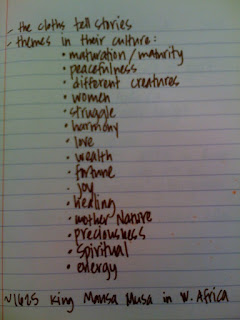 - the cloths tell stories
- themes in their culture:
• maturation/maturity
• peacefulness
• different creatures
• women
• struggle
• harmony
• love
• wealth
• fortune
• joy
• healing
• mother Nature
• preciousness
• spiritual
• energy
~1625 King Mansa Musa in W. Africa